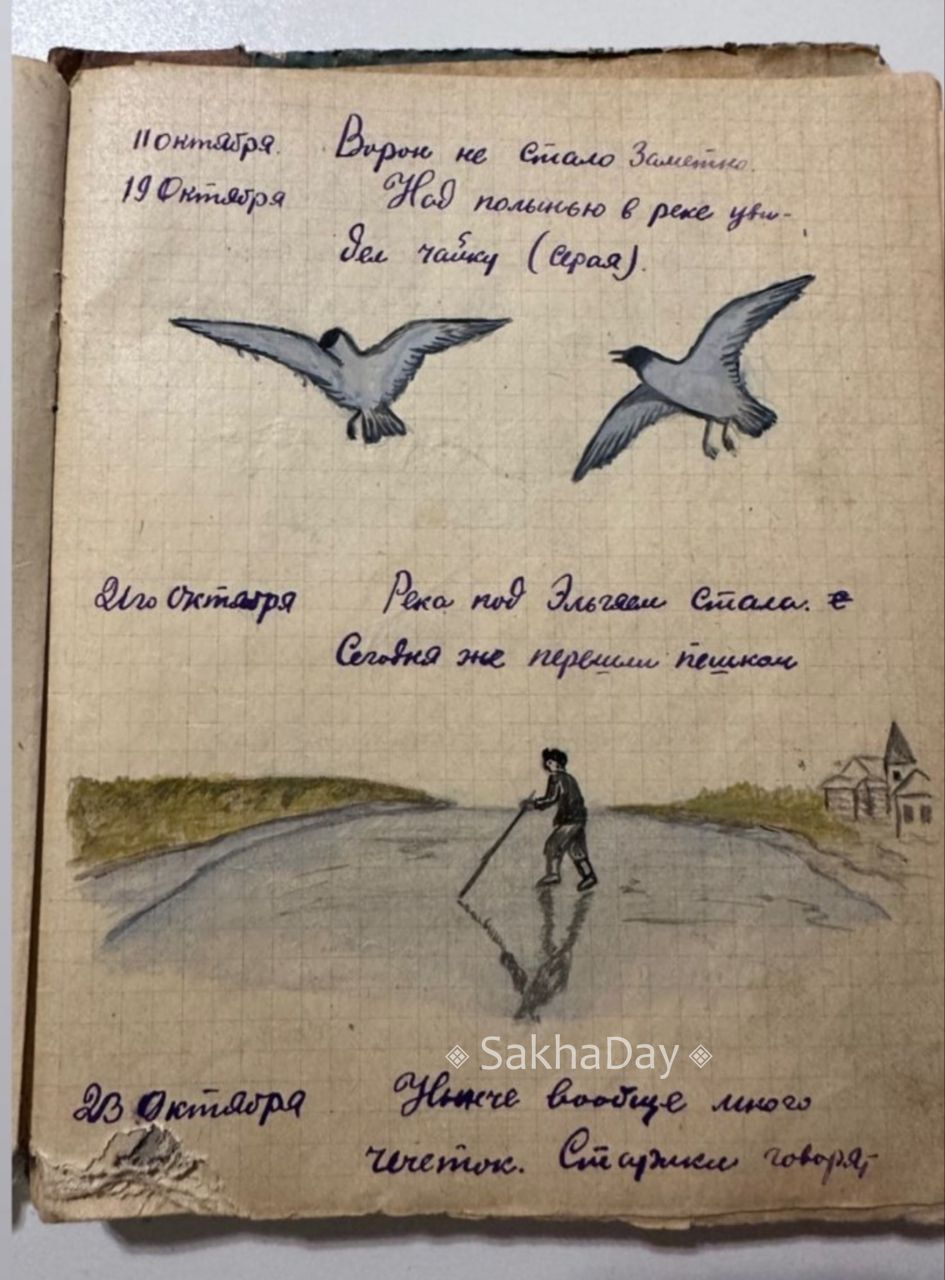 11 октября. Ворон не стало заметно.
19 Октября Над полыньёю в реке уви-
дел чайку (серая).
21го Октября Река под Эльгяем стала. е
Сегодня же перешли пешком
❖ SakhaDay ❖
23 Октября Нынче вообще много
чечеток. Старики говорят